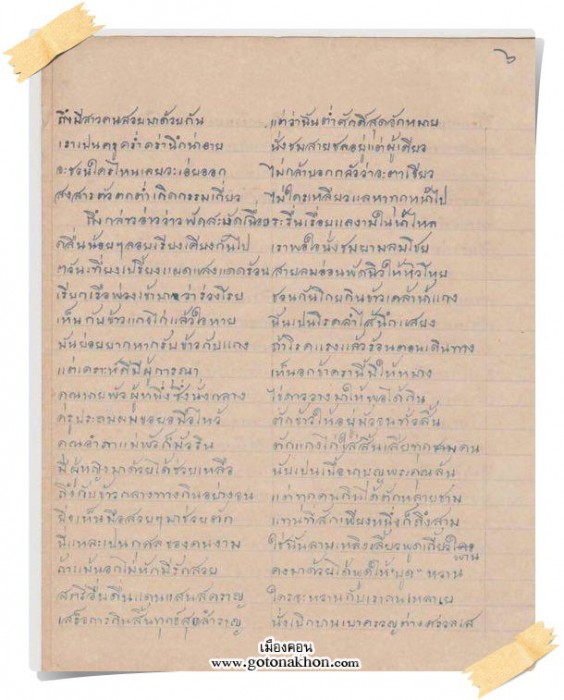 ๖
ถึงมีสาวคนสวยมาด้วยกัน แต่ว่านั้นต่ำศักดิ์สุดรักหมาย
เราเป็นครูคร่ำคร่านึกน่าอาย นั่งชมสายชลอยู่แต่ผู้เดียว
จะชวนใครไหนเลยจะเอ่ยออก ไม่กล้าบอกกลัวว่าจะตาเขียว
สงสารตัวตกต่ำเกิดกรรมเกี่ยว ไม่ใครเหลียวแลหาทกหน้าไป
ถึงกล่าวอ่าว
กลิ่นน้อยๆลอยเรียงเคียงกันไป เราพอใจนั่งชมยามลมโชย
ตวันเที่ยงเปรี้ยงแผดแสงแดดร้อน สายลมอ่อนพัดฉิวให้หิวโหย
เรียกเรือพ่วงเข้ามา ชวนกันโกยกินข้าวเคล้าน้ำแกง
เห็นกับข้าวแกงไก่แล้วใจหาย ฉันเป็นโรคลำไส้นึกแสยง
มันย่อยยากหากรับข้าวกับแกง ถ้าโรคแรงแล้วร้อนตอนเดินทาง
แต่เคราะห์ดีมีผู้การณา เห็นอกข้าครานี้มิให้หมาง
คุณนายพัวผู้หนึ่งซึ่งนั่งกลาง ไข่ดาววางมาให้พอได้กิน
ครูประถมผมขอยอมือไหว้ ตักข้าวให้อยู่มัวจนทั่วสิ้น
คุณอำภาแม่พัวก็มัวริน ตักแกงไก่ใส่สิ้นเสียทุกชามคน
มีผู้หญิงมาด้วยได้ช่วยเหลือ นับเป็นเนื้อนาบุญพระคุณล้น
ถึงกับข้าวกลางทางกินอย่างจน แต่ทุกคนกินได้ตักหลายชาม
ยิ่งเห็นมือสวยๆมาช่วยตัก แทนที่สักเพียงหนึ่งก็ถึงสาม
นี่แหละเป็นกุศลของคนงาม ใช่ฉันลามเหลิงเลี้ยวพูดเกี้ยวใคร
ถ้าแม้นอกไม่หักมีรักสวย คงมาด้วยได้พูดให้ "บูด" หวาน
สตรีอื่นดื่นแดนแสนสคราญ ใครจะหวานกับเราถนเหลาย
เสร็จการกินสิ้นทุกข์สุขสำราญ
เมืองคอน
www.gotonakhon.com